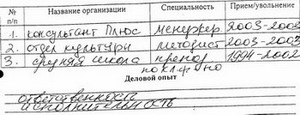 № п/п Название организации Специальность Прием/увольнение
1. консультант Плюс менеджер 2003-2003
2. отдел культуры методист 2003-2003
3. средняя школа препод 1994-2002
Деловой опыт
ответственность
исполнительность